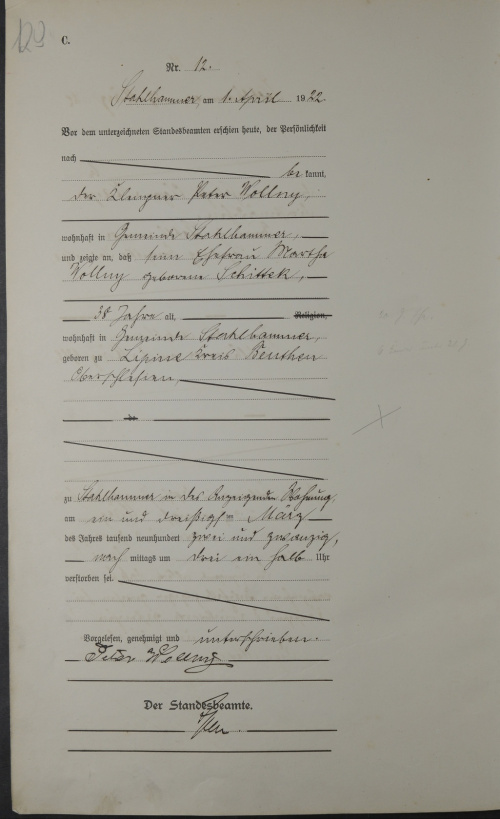 123
C.
Nr. 12.
Stahlhammer, am 1. April 1922.
Vor dem unterzeichneten Standesbeamten erschien heute, der Persönlichkeit
nach
be kannt,
der Klempner Peter Wollny,
wohnhaft in Gemeinde Stahlhammer,
und zeigte an, daß seine Ehefrau Martha
Wollny geborene Schittek,
38 Jahre alt, Religion,
wohnhaft in Gemeinde Stahlhammer,
geboren zu Lipine Kreis Beuthen
Oberschlesien,
de
zu Stahlhammer in des Anzeigenden Wohnung
am ein und dreißigsten März
des Jahres tausend neunhundert zwei und zwanzig,
nach mittags um drei ein halb Uhr
verstorben sei.
Vorgelesen, genehmigt und unterschrieben.
Peter Wollny
Der Standesbeamte.